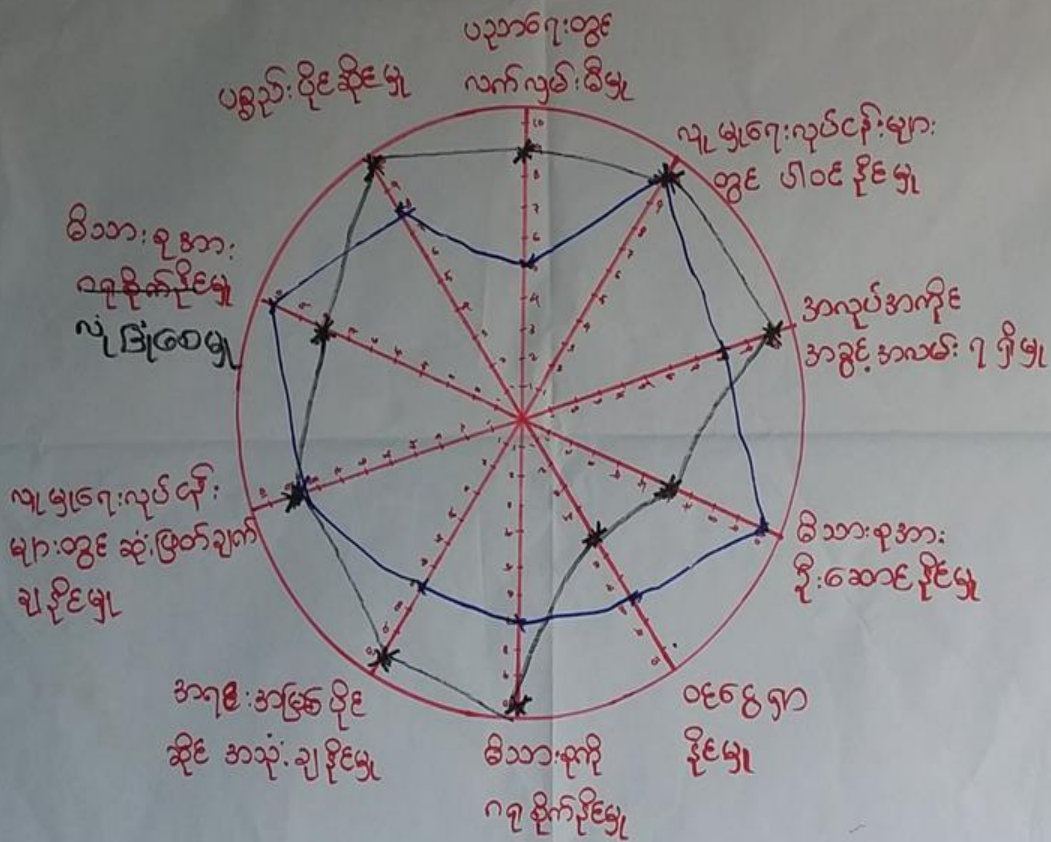 ပညာရေးတွင်
လက်လှမ်းမီမှု
လူမှုရေးလုပ်ငန်းများ
တွင် ပါဝင်နိုင်မှု
အလုပ်အကိုင်
အခွင့်အလမ်းရရှိမှု
မိသားစုအား
ဦးဆောင်နိုင်မှု
ဝင်ငွေရှာ
နိုင်မှု
မိသားစုကို
ဂရုစိုက်နိုင်မှု
အရင်းအမြစ်ပိုင်
ဆိုင် အသုံးချနိုင်မှု
လူမှုရေးလုပ်ငန်း
များတွင် ဆုံးဖြတ်ချက်
ချနိုင်မှု
မိသားစုအား
ဂရုစိုက်နိုင်မှု
လုံခြုံစေမှု
ပစ္စည်းပိုင်ဆိုင်မှု